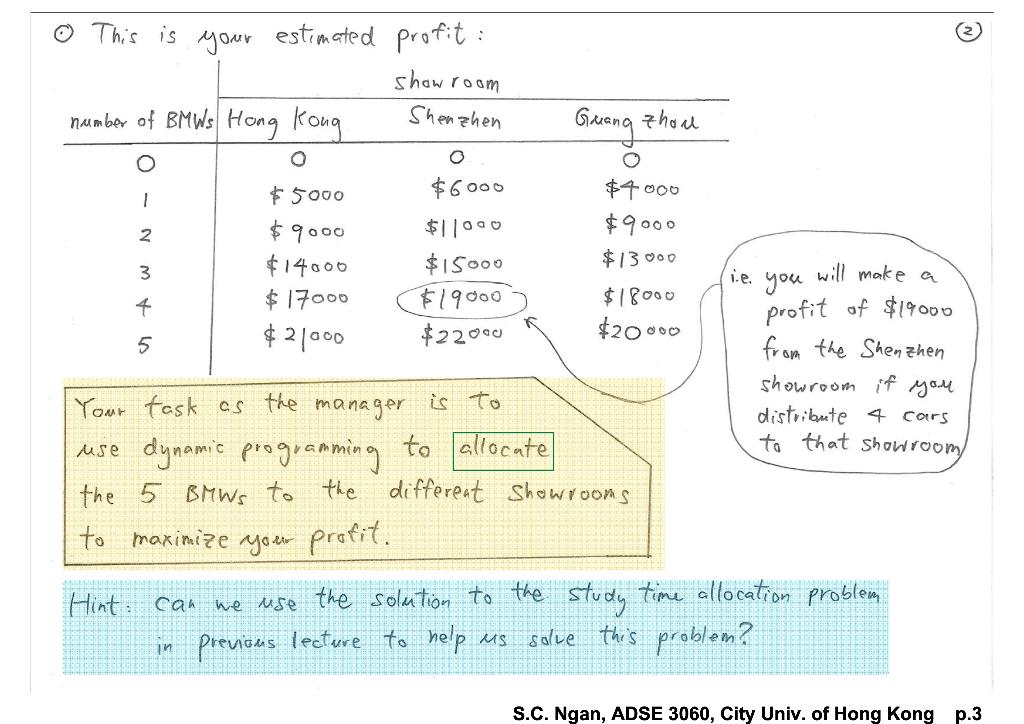 ⊙ This is your estimated profit :
2
showroom
number of BMWs Hong Kong Shenzhen Guangzhou
0 0 0 0
1 $5000 $6000 $4000
2 $9000 $11000 $9000
3 $14000 $15000 $13000
4 $17000 $19000 $18000
5 $21000 $22000 $20000
i.e. you will make a
profit of $19000
from the Shenzhen
showroom if you
distribute 4 cars
to that showroom
Your task as the manager is to
use dynamic programming to allocate
the 5 BMWs to the different showrooms
to maximize your profit.
Hint: Can we use the solution to the study time allocation problem
in previous lecture to help us solve this problem?
S.C. Ngan, ADSE 3060, City Univ. of Hong Kong p.3